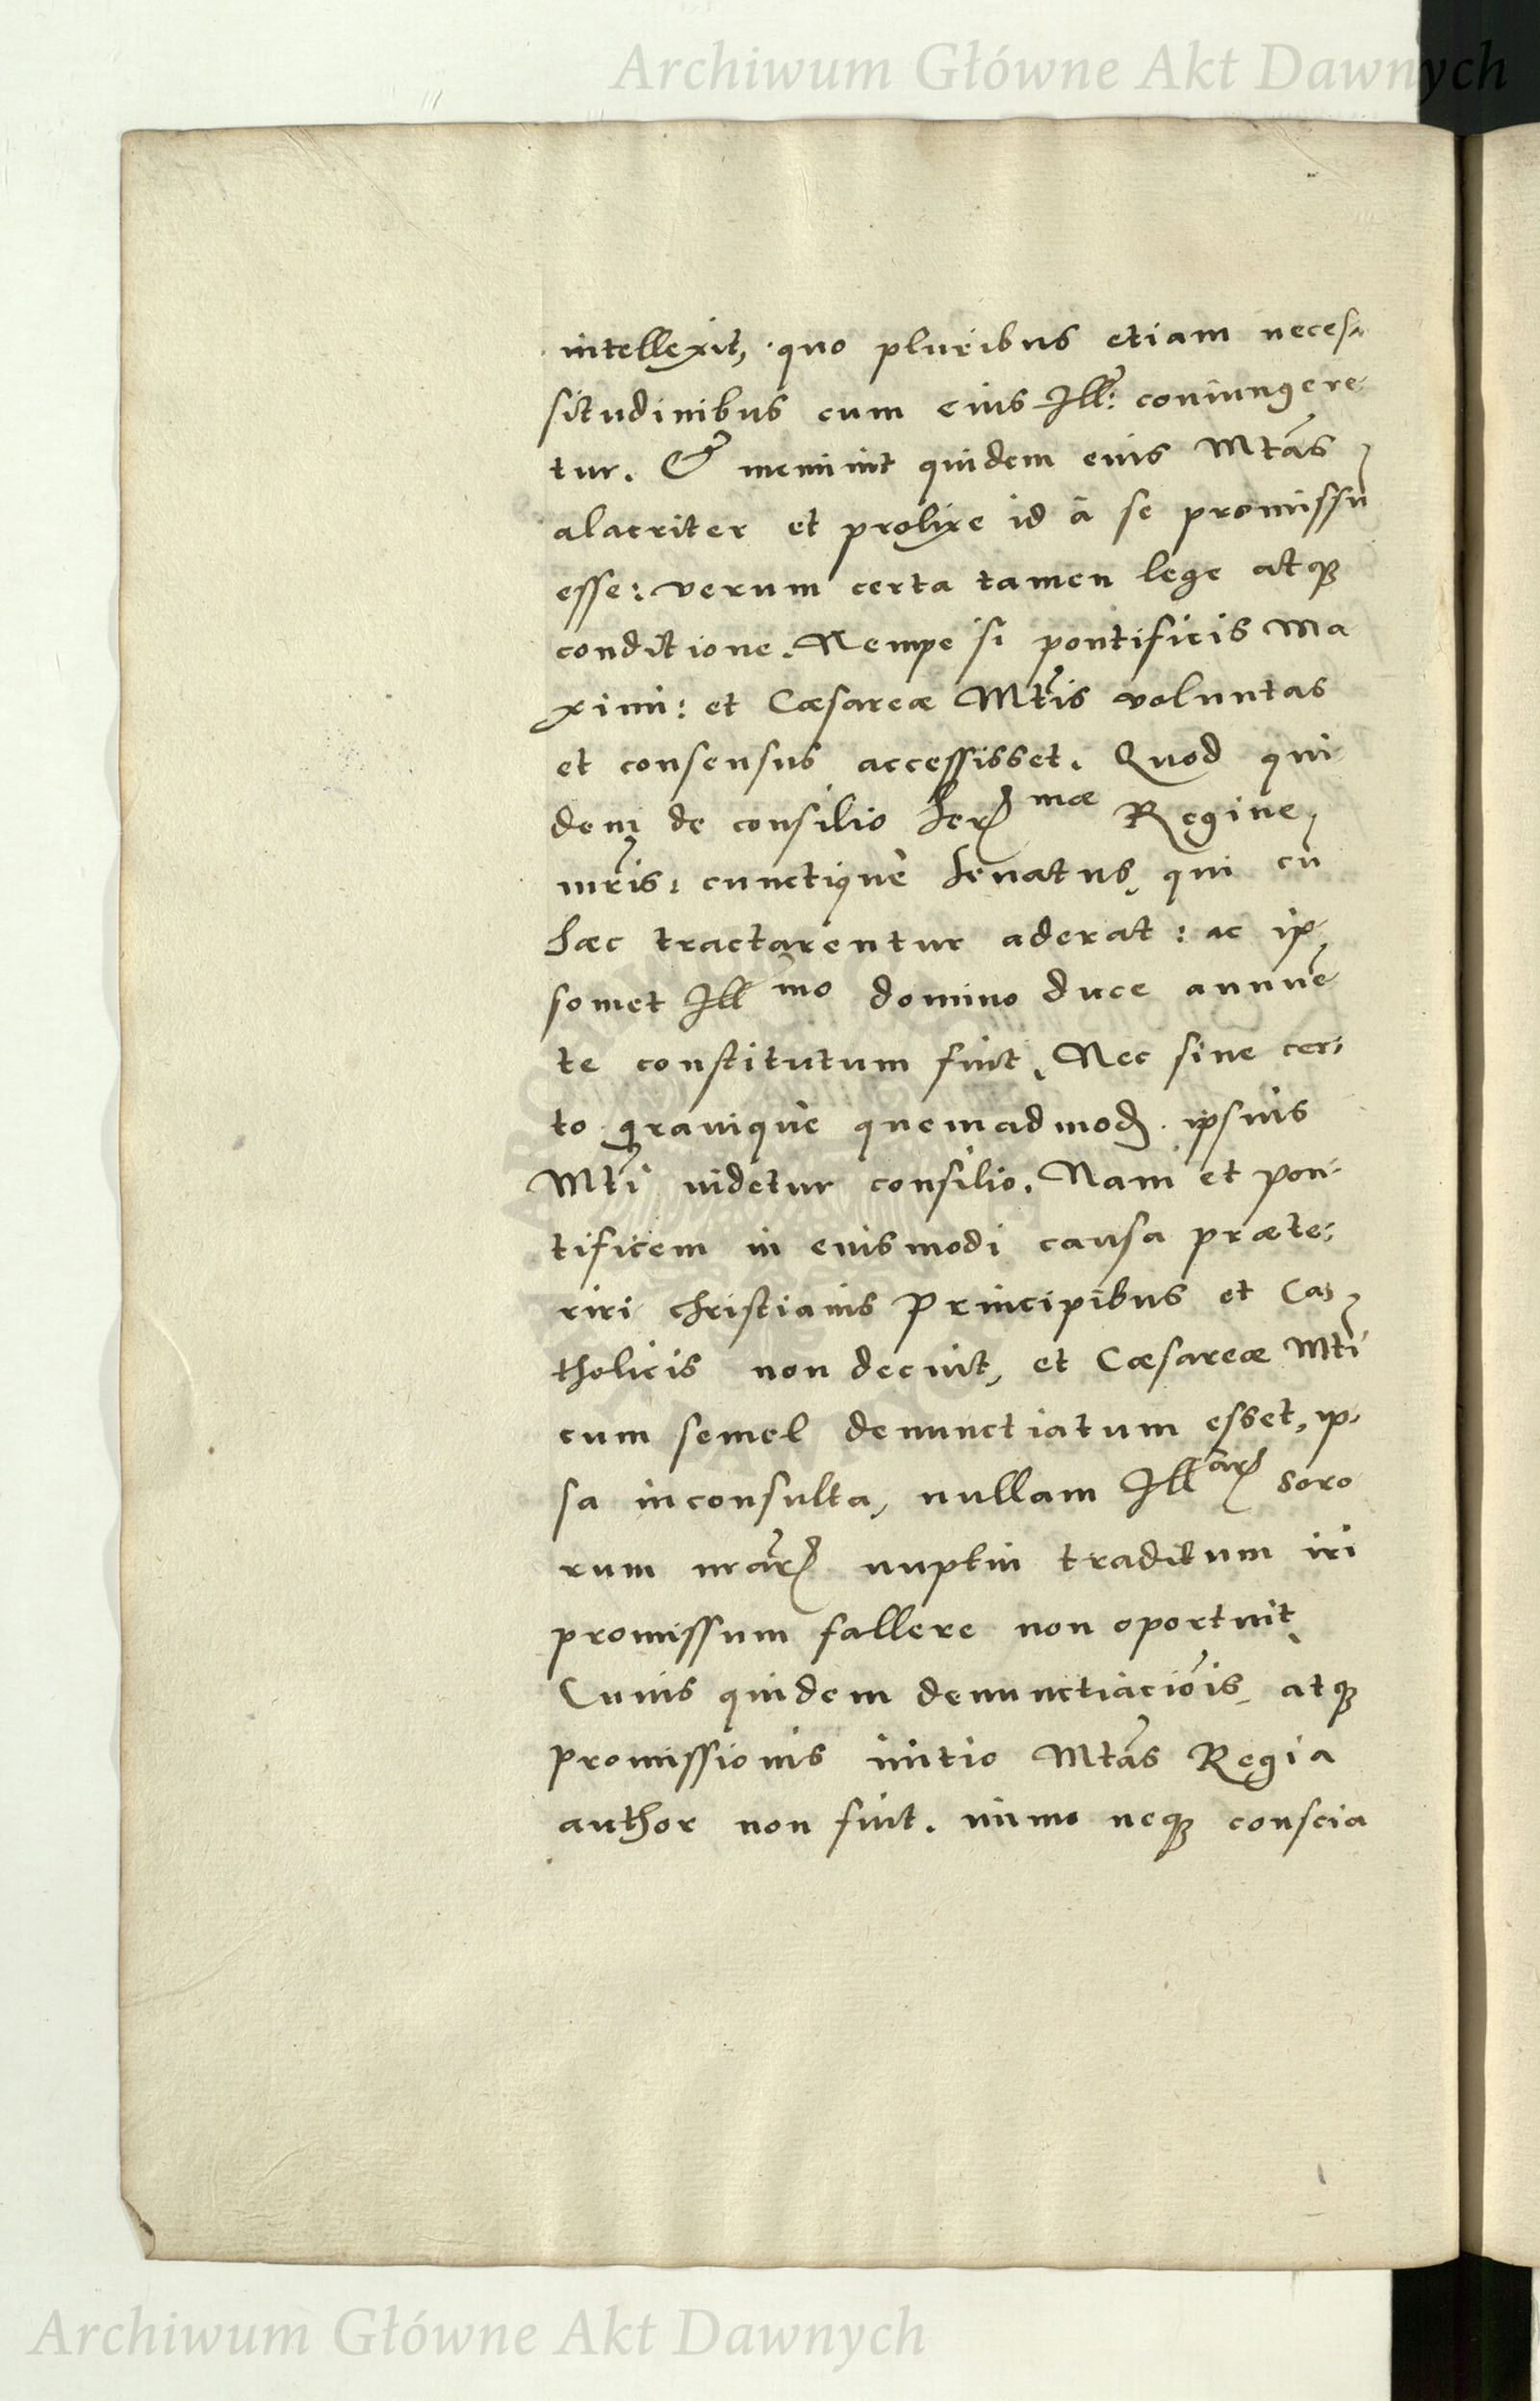 Archiwum Główne Akt Dawnych
intellexit, quo pluribus etiam neces-
situdinibus cum eius Ill: coniungere
tur. Et meminit quidem eius Mtas
alacriter et prolixe id à se promissū
esse: verum certa tamen lege atqȝ
conditione. Nempe si pontificis Ma
ximi: et Cæsareæ Mtis voluntas
et consensus accessisset. Quod qui
dem de consilio Ser mae Regine
mris: cunctique Senatus, qui cū
hæc tractarentur aderat: ac ip-
somet Ill mo domino duce annuē
te constitutum fuit. Nec sine cer-
to grauique quemadmod. ipsius
Mti uidetur consilio. Nam et pon-
tificem in eiusmodi causa præte-
riri christianis Principibus et Ca-
tholicis non decuit, et Cæsareæ Mti
cum semel denunctiatum esset, ip-
sa inconsulta, nullam Ill ar soro
rum nrar nuptui traditum iri
promissum fallere non oportuit
Cuius quidem denunctiaciōis, atqȝ
promissionis initio Mtas Regia
author non fuit. immo neqȝ conscia
Archiwum Główne Akt Dawnych